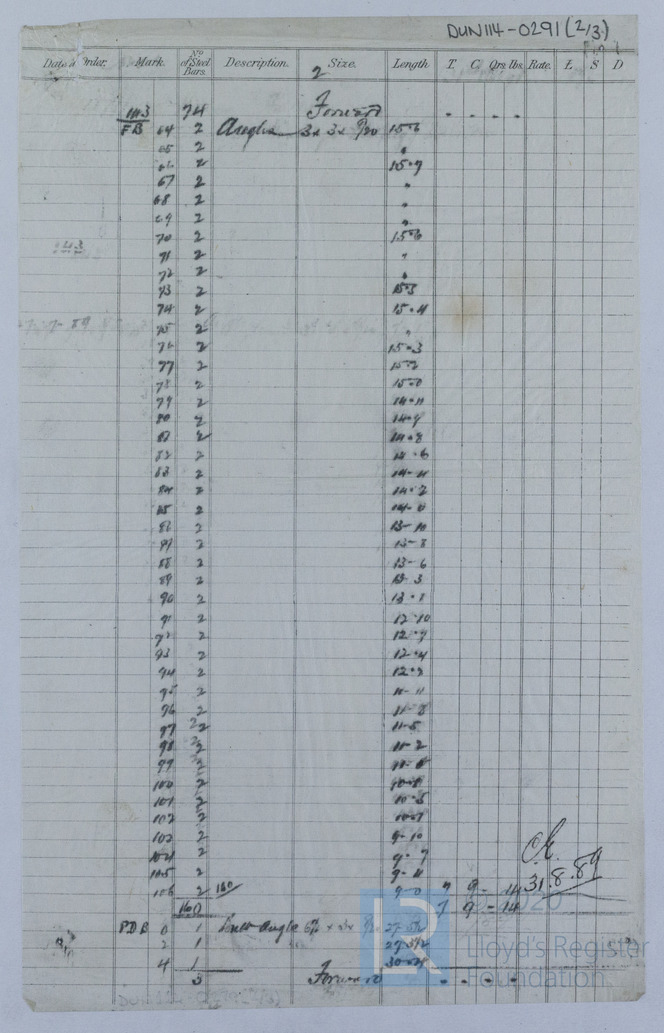 DUN114-0291 (2/3)
Order. Mark. No of Steel Bars. Description. Size. Length T. C. Qrs. lbs. Rate. £ S D
2
143 74 Forward
FB 64 2 Angles 3 x 3 x 9/20 15-6
65 2 "
66 2 15-9
67 2 "
68 2 "
69 2 "
70 2 15-6
71 2 "
72 2 "
73 2 15-3
74 2 15-4
75 2 "
76 2 15-3
77 2 15-2
78 2 15-0
79 2 14-11
80 2 14-9
81 2 14-8
82 2 14-6
83 2 14-4
84 2 14-2
85 2 14-0
86 2 13-10
87 2 13-8
88 2 13-6
89 2 13-3
90 2
91 2 12-10
92 2 12-7
93 2 12-4
94 2 12-2
95 2 11-11
96 2 11-8
97 2 11-5
98 2 11-2
99 2
100 2
101 2 10-5
102 2 10-1
103 2 9-10
104 2 9-7
105 2 9-4
106 2 160 9-0 7 9 - 14
160 7 9 - 14
31.8.89
PDB 0 1 Angle 27-5½
2 1 27-5½
4 1
3 Forward
LR
Lloyd's Register
Foundation